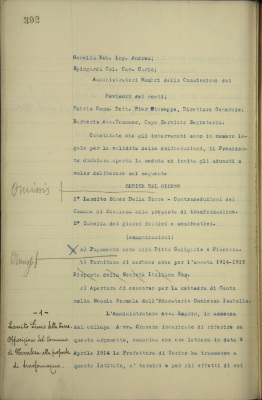 302
Novella Not. Ing. Andrea;
Spingardi Col. Cav. Carlo;
Amministratori Membri della Commissione dei
Revisori dei conti;
Comm. Dott. Pier Giuseppe, Direttore Generale;
Barberis Avv. Tommaso, Capo Servizio Segreteria.
Constatato che gli intervenuti sono in numero le-
gale per la validità delle deliberazioni, il Presiden-
te dichiara aperta la seduta ed invita gli adunati a
voler deliberare sul seguente
ORDINE DEL GIORNO
1° Lascito Siseo Della Torre - Controdeduzioni del
Comune di alla proposta di trasformazione.
2° Tabella dei giorni festivi e semifestivi.
(comunicazioni)
a) Pagamento alla Ditta Calligaris e Piacenza.
b) Fornitura di carbone coke per l'annata 1914-1915
Risposta della Società Italiana Gas.
c) Apertura di concorso per la cattedra di Canto
nella Scuola Normale dell'Educatorio Duchessa Isabella.
- 1 -
Lascito della Torre
Opposizione del Comune
di alla proposta
di trasformazione.
L'Amministratore Avv. in assenza
del collega Avv. incaricato di riferire su
questo argomento, comunica che con lettera in data
Aprile 1914 la Prefettura di Torino ha trasmesso a
questo Istituto, a' termini e per gli effetti di cui